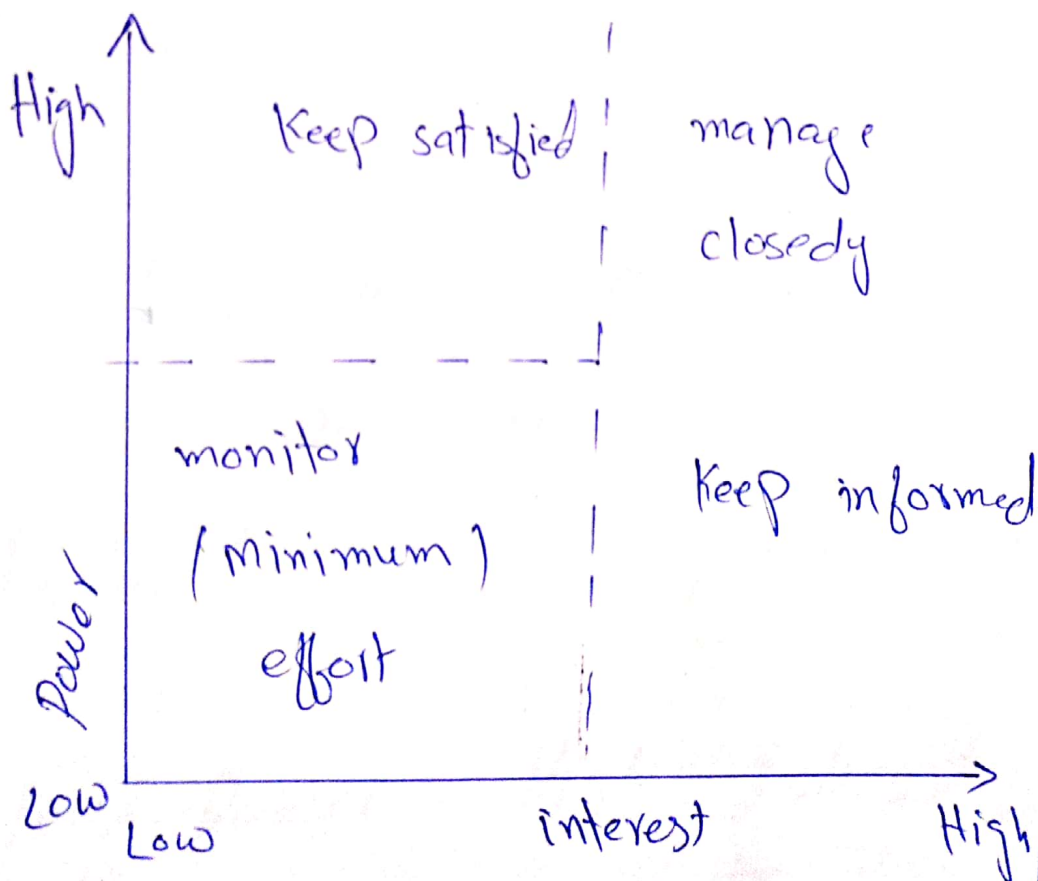 High
Keep satisfied
manage
closedy
monitor
(Minimum)
effort
Keep informed
Power
Low
Low
interest
High